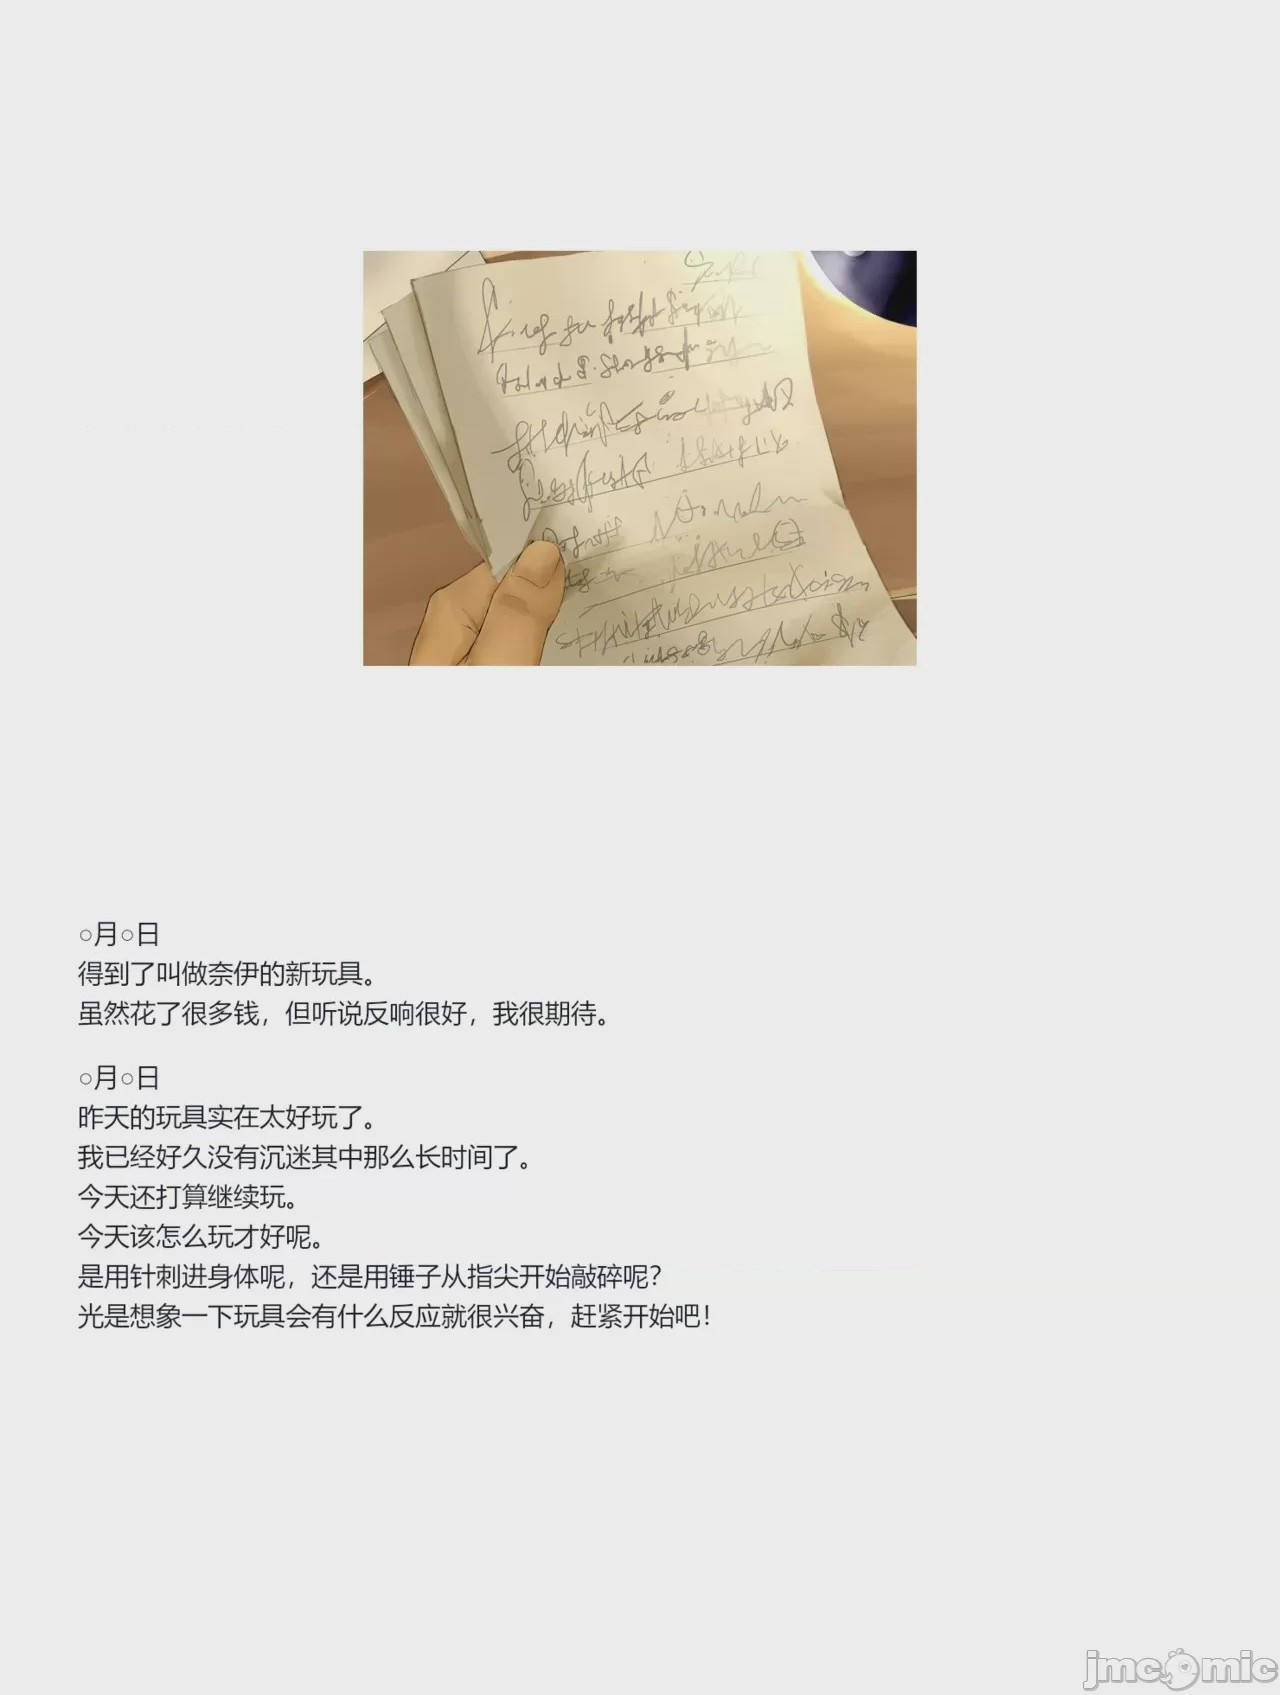 ○月○日
得到了叫做奈伊的新玩具。
虽然花了很多钱，但听说反响很好，我很期待。
○月○日
昨天的玩具实在太好玩了。
我已经好久没有沉迷其中那么长时间了。
今天还打算继续玩。
今天该怎么玩才好呢。
是用针刺进身体呢，还是用锤子从指尖开始敲碎呢？
光是想象一下玩具会有什么反应就很兴奋，赶紧开始吧！
jmcomic